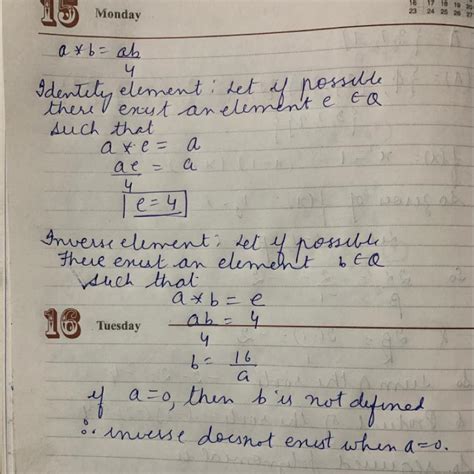 15 Monday
16 17 18 19 20
23 24 25 26 27
a * b = ab/4
Identity element: Let if possible
there exist an element e ∈ Q
such that
a * e = a
ae/4 = a
e = 4
Inverse element: Let if possible
There exist an element b ∈ Q
such that
a * b = e
16 Tuesday
ab/4 = 4
b = 16/a
if a=0, then b is not defined
∴ inverse doesnot exist when a=0.